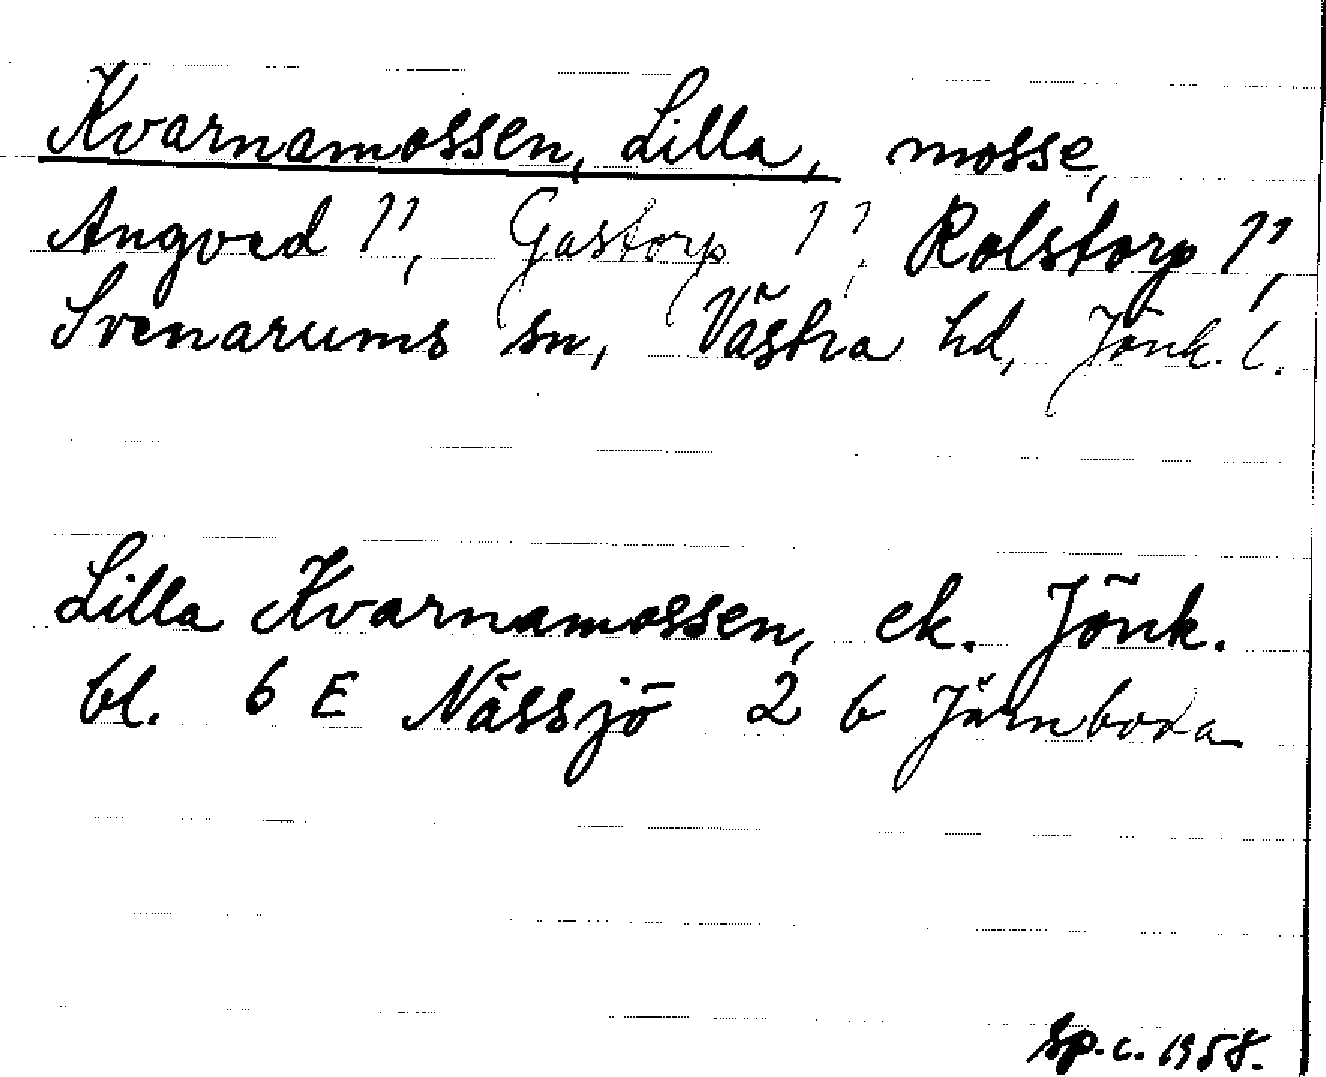 Kvarnamossen, Lilla, mosse,
Angvad ??, Gastorp ??, Rolstorp ??,
Svenarums sn, Västra hd, Jönk. l.
Lilla Kvarnamossen, ek. Jönk.
bl. 6 E Nässjö 2 b Järnboda
Sp.c. 1958.